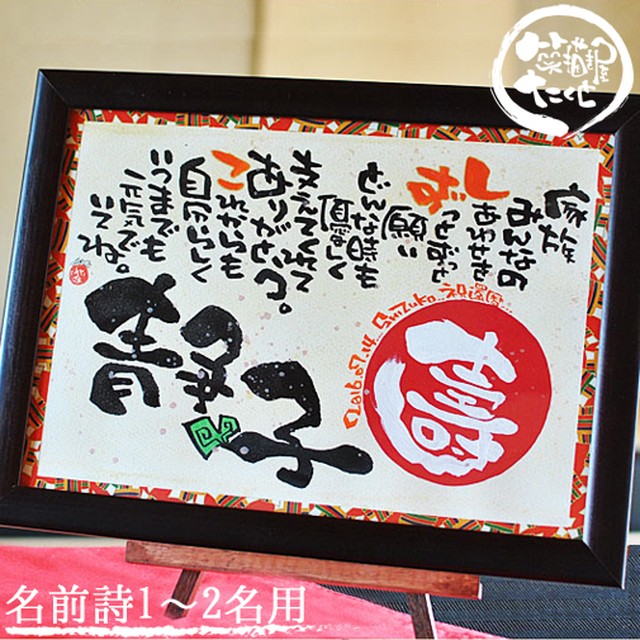 家族
みんなの
しあわせを
ずっとずっと
願い
どんな時も
優しく
支えてくれて
ありがとう。
これからも
自分らしく
いつまでも
元気で
いてね。
静子
名前詩1〜2名用